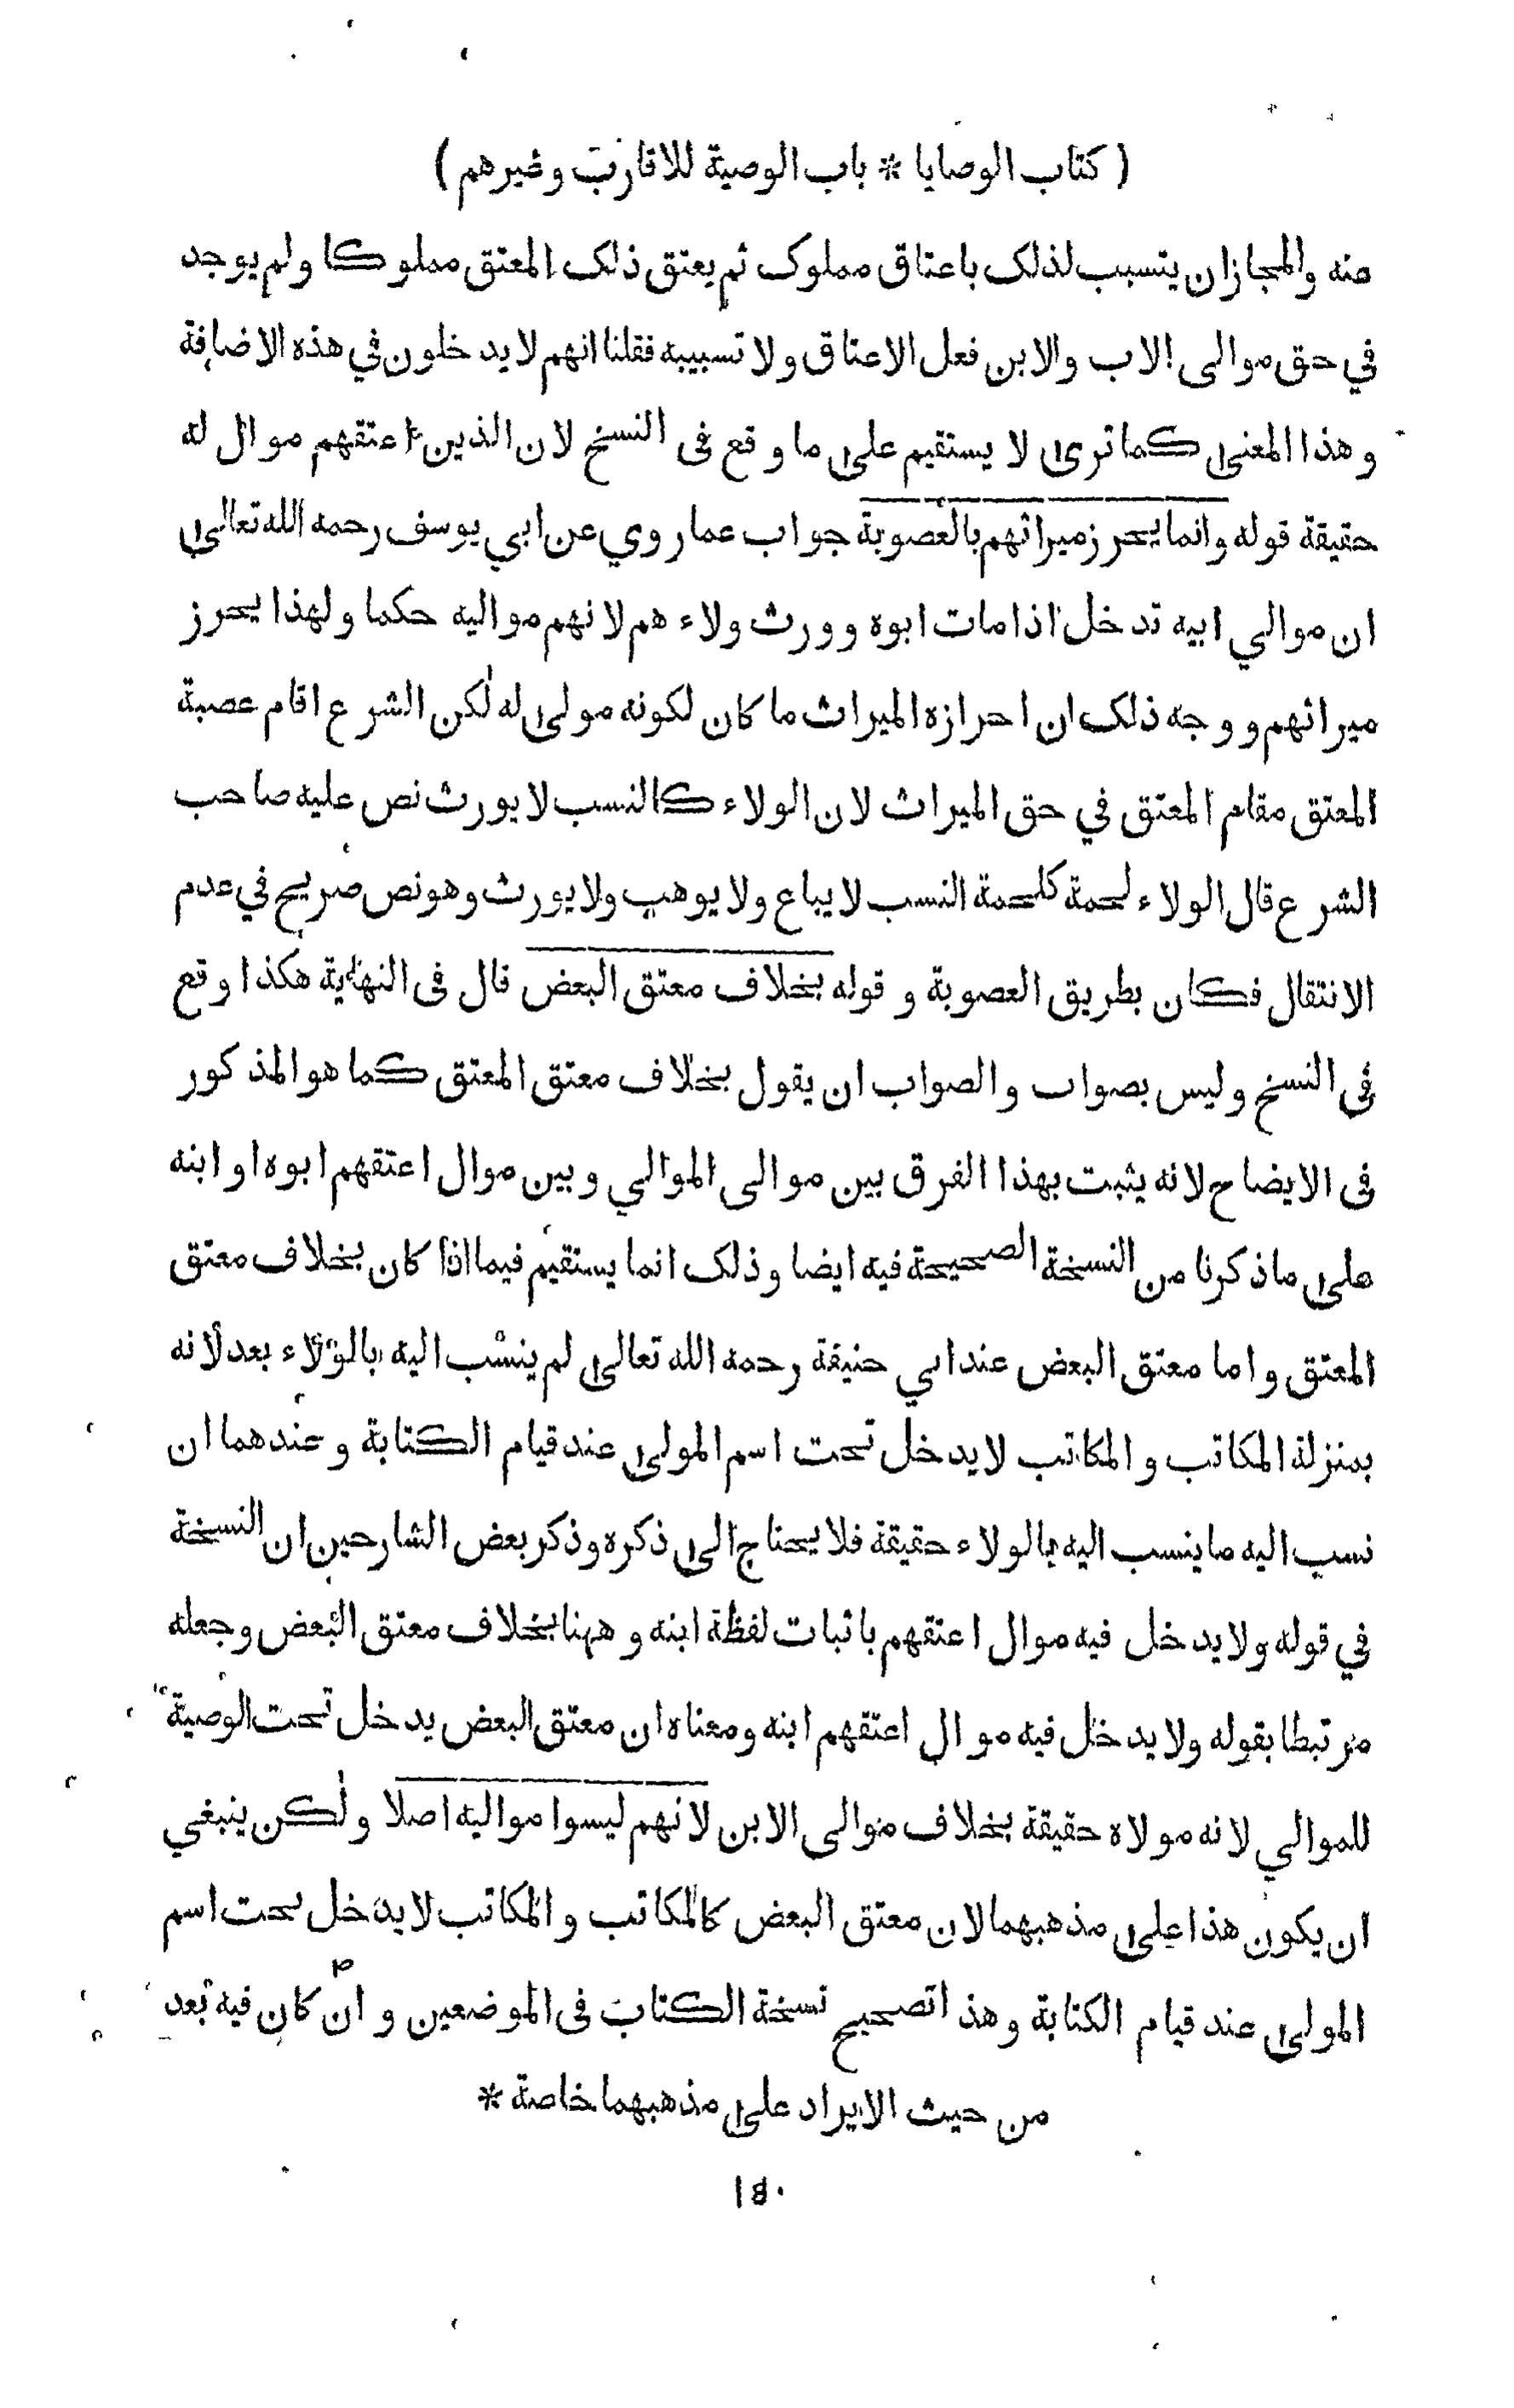 ( كتاب الوصايا * باب الوصية للاقارب وغيرهم )
منه والمجازان يتسبب لذلک باعتاق مملوک ثم يعتق ذلک المعتق مملوكا ولم يوجد
في حق موالى الاب والابن فعل الاعتاق ولا تسبيبه فقلنا انهم لا يدخلون في هذه الاضافة
وهذا المعنى كما ترى لا يستقيم على ما وقع فى النسخ لان الذين اعتقهم موال له
حقيقة قوله وانما يحرز ميراثهم بالعصوبة جواب عما روي عن ابي يوسف رحمه الله تعالى
ان موالي ابيه تدخل اذا مات ابوه وورث ولاءهم لانهم مواليه حكما ولهذا يحرز
ميراثهم ووجه ذلک ان احرازه الميراث ما كان لكونه مولى له لكن الشرع اقام عصبة
المعتق مقام المعتق في حق الميراث لان الولاء كالنسب لا يورث نص عليه صاحب
الشرع قال الولاء لحمة كلحمة النسب لا يباع ولا يوهب ولا يورث وهو نص صريح في عدم
الانتقال فكان بطريق العصوبة و قوله بخلاف معتق البعض قال فى النهاية هكذا وقع
فى النسخ وليس بصواب والصواب ان يقول بخلاف معتق المعتق كما هو المذكور
فى الايضاح لانه يثبت بهذا الفرق بين موالى الموالي وبين موال اعتقهم ابوه او ابنه
على ما ذكرنا من النسخة الصحيحة فيه ايضا وذلک انما يستقيم فيما اذا كان بخلاف معتق
المعتق واما معتق البعض عند ابي حنيفة رحمه الله تعالى لم ينسب اليه بالولاء بعد لانه
بمنزلة المكاتب والمكاتب لا يدخل تحت اسم المولى عند قيام الكتابة وعندهما ان
نسب اليه ما ينسب اليه بالولاء حقيقة فلا يحتاج الى ذكره وذكر بعض الشارحين ان النسخة
في قوله ولا يدخل فيه موال اعتقهم باثبات لفظة ابنه وههنا بخلاف معتق البعض وجعله
مرتبطا بقوله ولا يدخل فيه موال اعتقهم ابنه ومعناه ان معتق البعض يدخل تحت الوصية
للموالي لانه مولاه حقيقة بخلاف موالى الابن لانهم ليسوا مواليه اصلا ولكن ينبغي
ان يكون هذا على مذهبهما لان معتق البعض كالمكاتب والمكاتب لا يدخل تحت اسم
المولى عند قيام الكتابة وهذا تصحيح نسخة الكتاب فى الموضعين و ان كان فيه بعد
من حيث الايراد على مذهبهما خاصة *